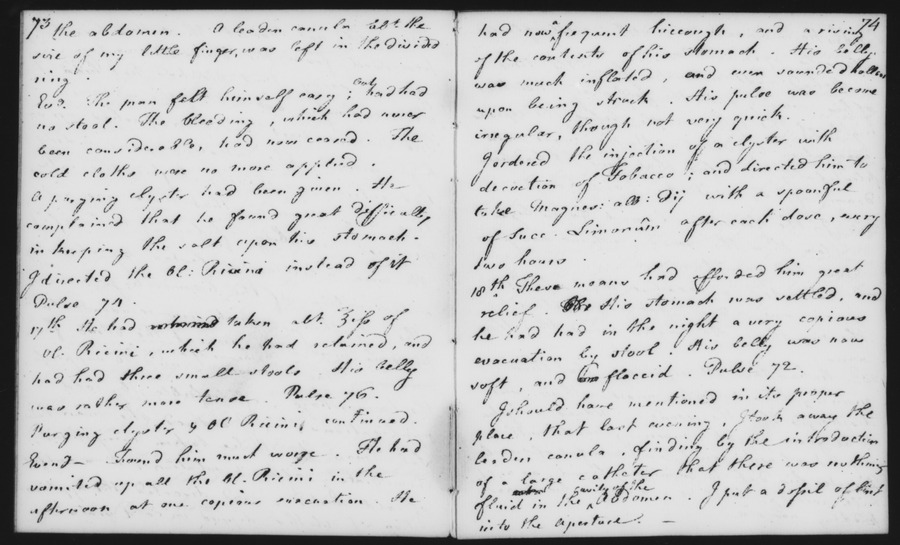 73
the abdomen. A leaden canula abt. the
size of my little finger, was left in the divided
ring.
Evg. The man felt himself easy; but had had
no stool. The bleeding, which had never
been considerable, had now ceased. The
cold cloths were no more applied.
A purging clyster had been given. He
complained that he found great difficulty
in keeping the salt upon his stomach.
I directed the Ol: Ricini instead of it
Pulse 74.
17th He had taken abt. ℥iſs of
Ol. Ricini, which he had retained, and
had had three small stools. His belly
was rather more tense. Pulse 76.
Purging clystr. & Ol Ricini continued.
Eveng— Found him much worse. He had
vomited up all the Ol. Ricini in the
afternoon at one copious evacuation. He
74
had now frequent hiccough, and a rising
of the contents of his stomach. His belly
was much inflated, and even sounded hollow
upon being struck. His pulse was become
irregular, though not very quick.
I ordered the injection of a clyster with
decoction of Tobacco; and directed him to
take Magnesi: alb: ʒij with a spoonful
of Succ. Limonum after each dose, every
two hours.
18th These means had afforded him great
relief. His stomach was settled, and
he had had in the night a very copious
evacuation by stool. His belly was now
soft, and flaccid. Pulse 72.
I should have mentioned in its proper
place, that last evening, I took away the
leaden canula, finding by the introduction
of a large catheter that there was nothing
fluid in the cavity of the abdomen. I put a dossil of lint
into the aperture. —